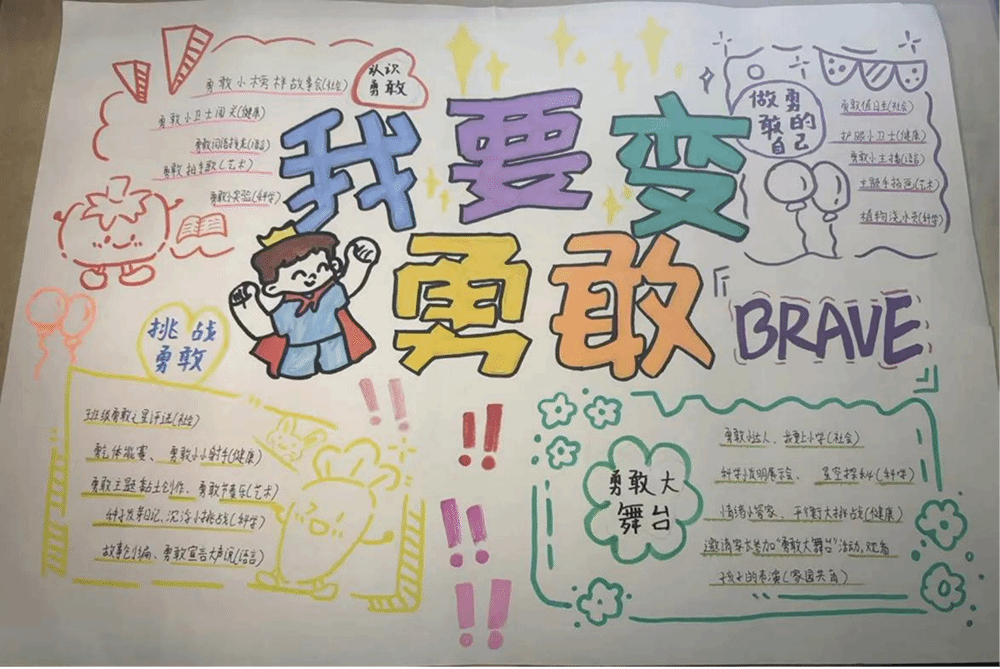 我要变
勇敢
BRAVE
认识
勇敢
勇敢小榜样故事会(社会)
勇敢小卫士闯关(健康)
勇敢词语接龙(语言)
勇敢拍手歌(艺术)
勇敢小实验(科学)
做勇
敢的
自己
勇敢值日生(社会)
护眼小卫士(健康)
勇敢小主播(语言)
主题手指画(艺术)
植物浇水员(科学)
挑战
勇敢
班级勇敢之星评选(社会)
体能赛、勇敢小小射手(健康)
勇敢主题黏土创作、勇敢节奏乐(艺术)
种子发芽日记、沉浮小挑战(科学)
故事创编、勇敢宣言大声说(语言)
勇敢大
舞台
勇敢小达人、我要上小学(社会)
科学小发明展示会、星空探秘(科学)
情绪小管家、平衡大挑战(健康)
邀请家长参加“勇敢大舞台”活动,观看
孩子的表演(家园共育)